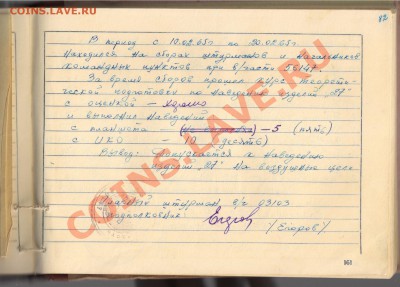 COINS.LAVE.RU
В период с 10.02.65г по 20.02.65г
находился на сборах штурманов и начальников
командных пунктов при в/части 56147.
За время сборов прошел курс теорети-
ческой подготовки по наведению
с оценкой – хорошо
и выполнил наведений
с планшета – 5 (пять)
с ИКО – 10 (десять)
Вывод: Допускается к наведению
на воздушные цели
штурман в/ч 03103
Подполковник:
/Егоров/
COINS.LAVE.RU